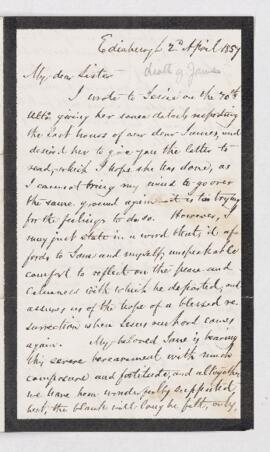 Edinburgh 2d April 1857
My dear Sister
death of James
I wrote to Jessie on the
Ulto giving her some details respecting
the last hours of our dear James, and
desired her to give you the letter to
read, which I hope she has done, as
I cannot bring my mind to go over
the same ground again - it is too trying
for the feelings to do so. However, I
may just state in a word that, it af-
fords to Jane and myself, unspeakable
comfort to reflect on the peace and
calmness with which he departed, and
assures us of the hope of a blessed re-
surrection when Jesus our Lord comes
again. My beloved Jane is bearing
this severe bereavement with much
composure and fortitude, and altogether
we have been wonderfully supported,
but, the blank will long be felt, only